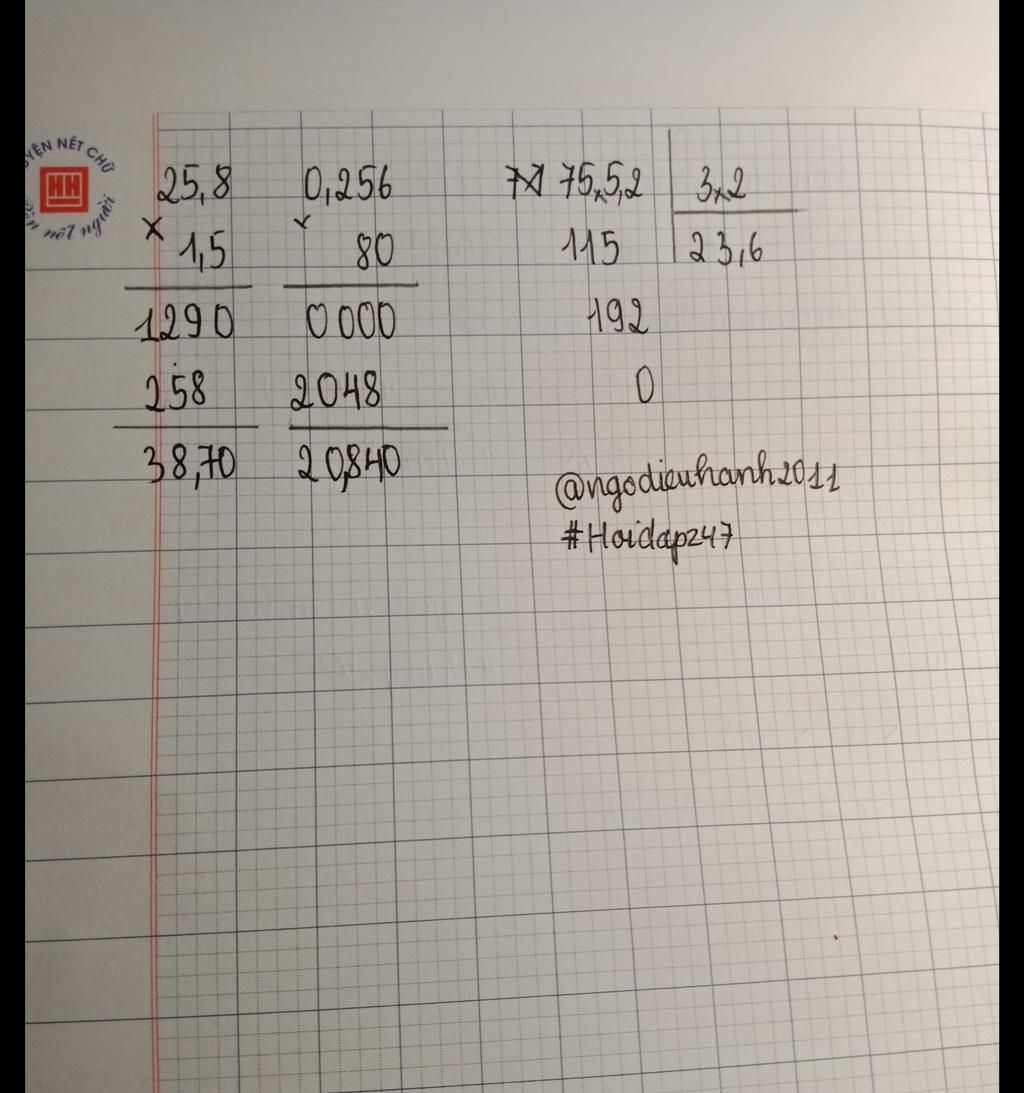 LUYỆN NÉT CHỮ
Rèn nết người
25,8 0,256 75,5,2 3,2
× 1,5 × 80 115 23,6
1290 0000 192
258 2048 0
38,70 20,840
@ngodieuhanh2011
#Hoidap247